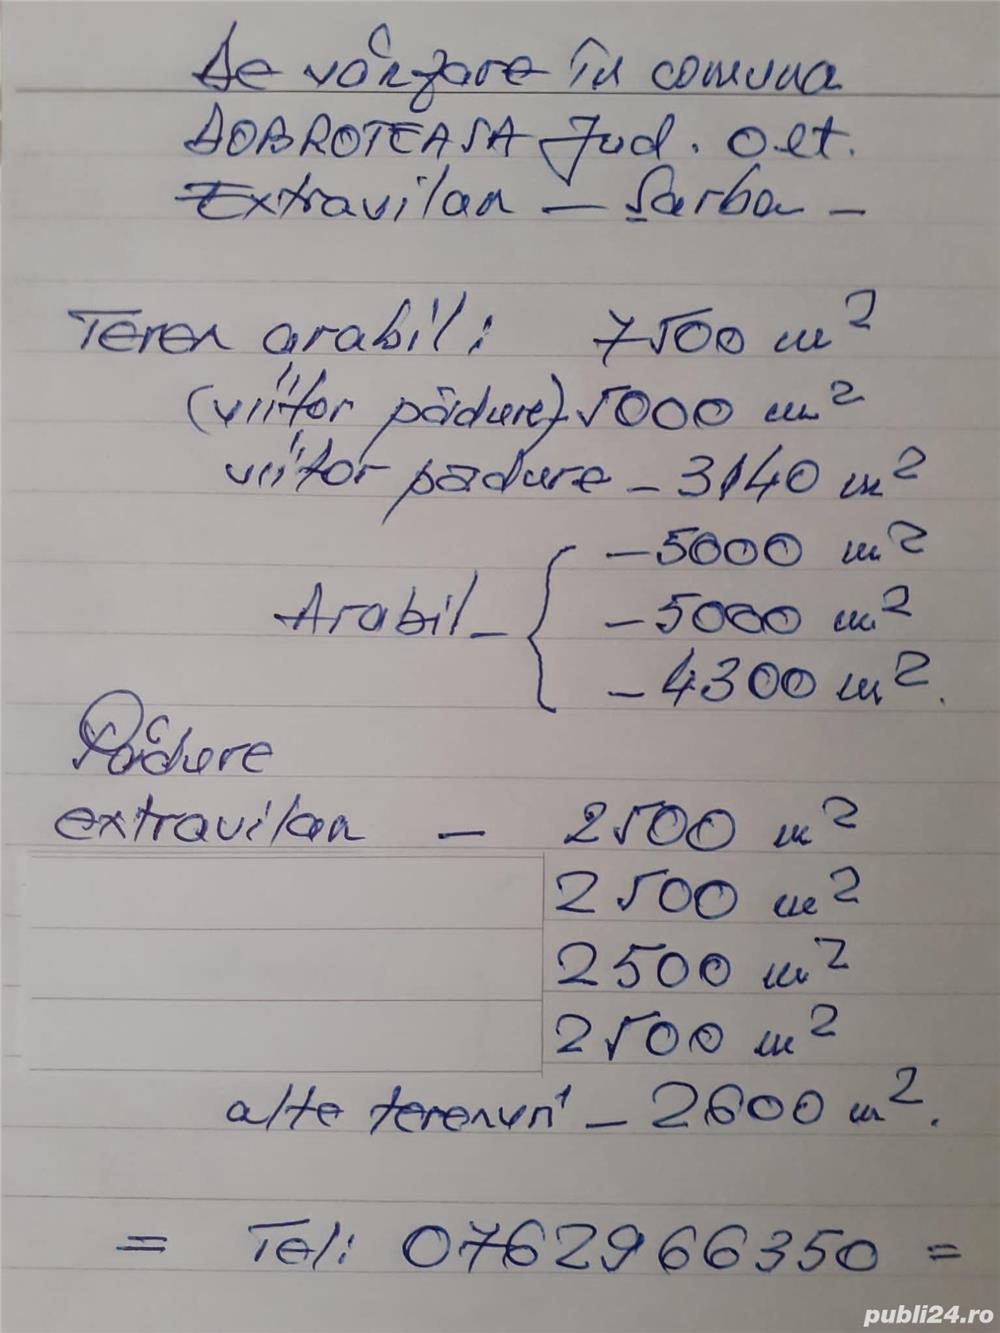 De vânzare în comuna
DOBROTEASA Jud. Olt.
Extravilan — Sarba —
Teren arabil: 7500 m²
(viitor pădure) 5000 m²
viitor pădure - 3140 m²
- 5000 m²
Arabil - { - 5000 m²
- 4300 m².
Pădure
extravilan — 2500 m²
2500 m²
2500 m²
2500 m²
alte terenuri - 2600 m².
= Tel: 0762966350 =
publi24.ro